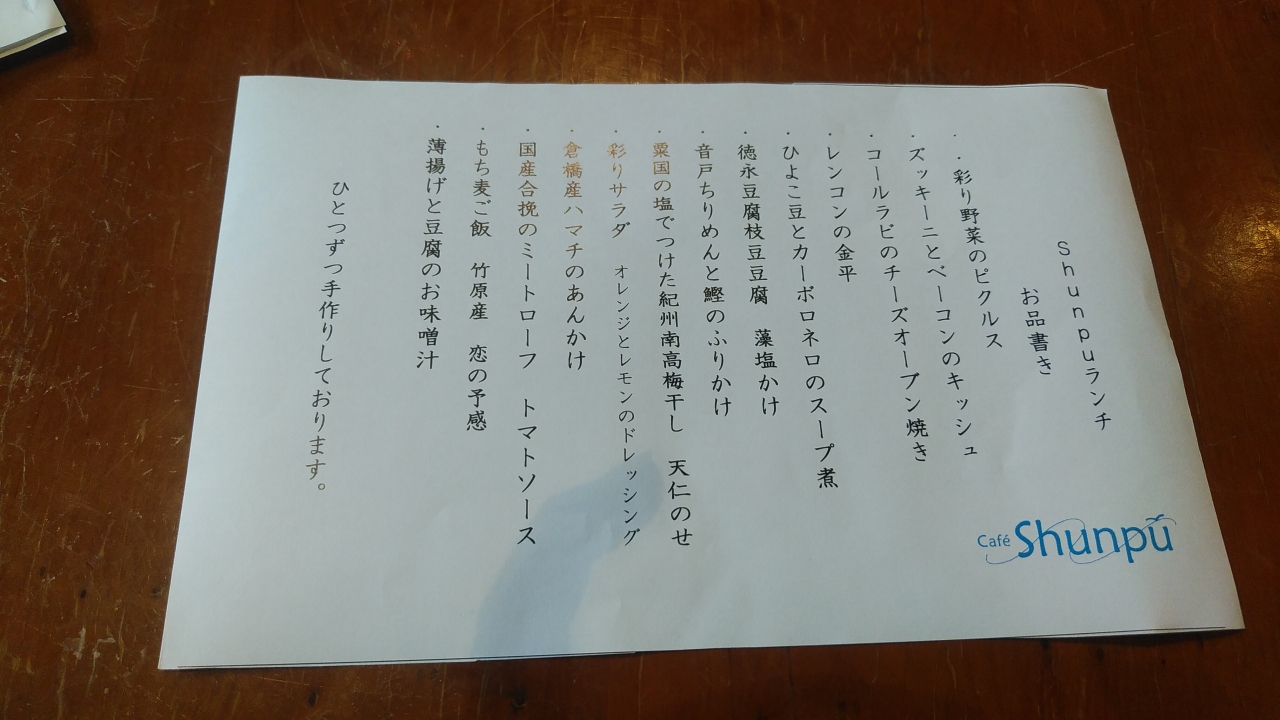 Shunpuランチ
お品書き
・彩り野菜のピクルス
・ズッキーニとベーコンのキッシュ
・コールラビのチーズオーブン焼き
・レンコンの金平
・ひよこ豆とカーボロネロのスープ煮
・徳永豆腐枝豆豆腐 藻塩かけ
・音戸ちりめんと鰹のふりかけ
・粟国の塩でつけた紀州南高梅干し 天仁のせ
・彩りサラダ オレンジとレモンのドレッシング
・倉橋産ハマチのあんかけ
・国産合挽のミートローフ トマトソース
・もち麦ご飯 竹原産 恋の予感
・薄揚げと豆腐のお味噌汁
ひとつずつ手作りしております。
Café Shunpū